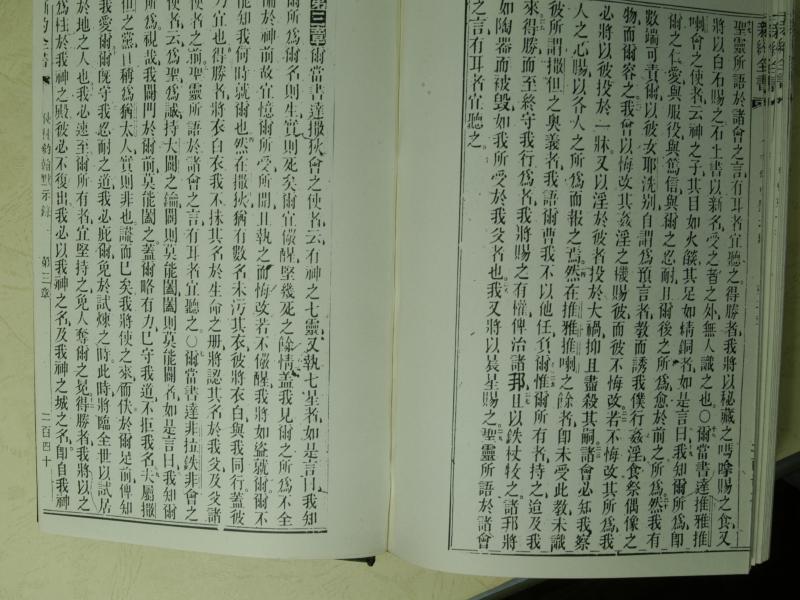 聖靈所語於諸會之言有耳者宜聽之得勝者我將以秘藏之嗎嗱賜之食又
將以白石賜之石上書以新名受之者之外無人識之也〇爾當書達推雅推
喇會之使者云神之子其目如火燄其足如精銅者如是言曰我知爾所爲卽
爾之仁愛與服役與篤信與爾之忍耐且爾後之所爲愈於前之所爲然我有
數端可責爾以彼女耶洗別自謂爲預言者教而誘我僕行姦淫食祭偶像之
物而爾容之我曾以悔改其姦淫之機賜彼而彼不悔改若不悔改其所爲我
必將以彼投於一牀又以淫於彼者投於大禍抑且盡殺其嗣諸會必知我察
人之心腸以各人之所爲而報之焉然在推雅推喇之餘者卽未受此教未識
彼所謂撒但之奧義者我語爾曹我不以他任負爾惟爾所有者持之迨及我
來得勝而至終守我行爲者我將賜之有權俾治諸邦且以鉄杖牧之諸邦將
如陶器而被毀如我所受於我父者也我又將以晨星賜之聖靈所語於諸會
之言有耳者宜聽之
第三章爾當書達撒狄會之使者云有神之七靈又執七星者如是言曰我知
爾所爲爾名則生實則死矣爾宜儆醒堅幾死之餘情蓋我見爾之所爲不全
於我神前故宜憶爾所受所聞且執之而悔改若不儆醒我將如盜就爾爾不
能知我何時就爾也然在撒狄猶有數名未污其衣彼將衣白與我同行蓋彼
宜也得勝者將衣白衣我不抹其名於生命之冊將認其名於我父及父諸
使者之前聖靈所語於諸會之言有耳者宜聽之〇爾當書達非拉鉄非會之
使者云爲聖爲誠持大闢之鑰闢則莫能闔闔則莫能闢者如是言曰我知爾
所爲視哉我闢門於爾前莫能闔之蓋爾略有力已守我道不拒我名夫屬撒
但之黨自稱爲猶太人實則非也謊而已矣我將使之來而伏於爾足前俾知
我愛爾爾既守我忍耐之道我必庇爾免於試煉之時此時將臨全世以試居
於地之人也我必速至爾所有者宜堅持之免人奪爾之冕得勝者我將以之
爲柱於我神之殿彼必不復出我必以我神之名及我神之城之名卽自我神
第三章
二百四十